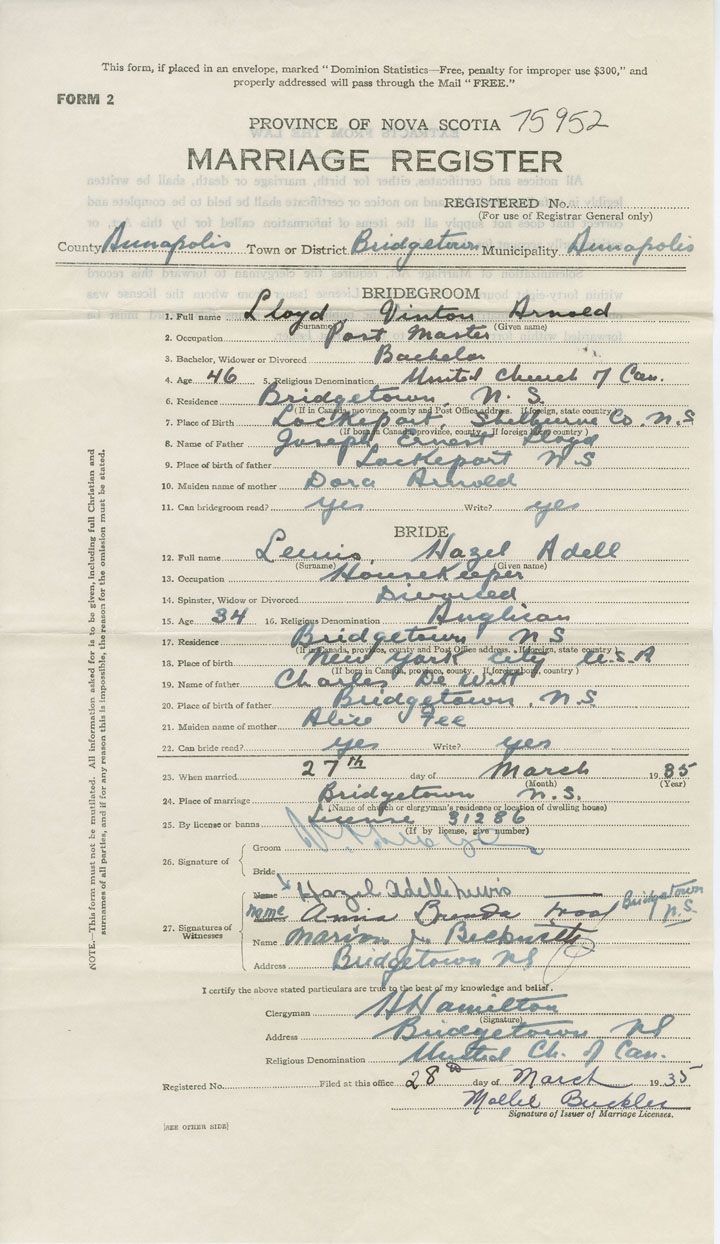 This form, if placed in an envelope, marked "Dominion Statistics—Free, penalty for improper use $300," and
properly addressed will pass through the Mail "FREE."
FORM 2
PROVINCE OF NOVA SCOTIA 75952
MARRIAGE REGISTER
REGISTERED No.
(For use of Registrar General only)
County Annapolis Town or District Bridgetown Municipality Annapolis
BRIDEGROOM
1. Full name Lloyd, Vinton Arnold
(Surname) (Given name)
2. Occupation Post Master
3. Bachelor, Widower or Divorced Bachelor
4. Age 46 5. Religious Denomination United Church of Can.
6. Residence Bridgetown, N. S.
(If in Canada, province, county and Post Office address. If foreign, state country)
7. Place of Birth Lockeport, Shelburne Co. N.S
(If born in Canada, province, county. If foreign born, country)
8. Name of Father Joseph Ernest Lloyd
9. Place of birth of father Lockeport N S
10. Maiden name of mother Dora Arnold
11. Can bridegroom read? yes Write? yes
BRIDE
12. Full name Lewis, Hazel Adell
(Surname) (Given name)
13. Occupation Housekeeper
14. Spinster, Widow or Divorced Divorced
15. Age 34 16. Religious Denomination Anglican
17. Residence Bridgetown N S
(If in Canada, province, county and Post Office address. If foreign, state country)
18. Place of birth New York City U.S.A
(If born in Canada, province, county. If foreign born, country)
19. Name of father Charles De Witt
20. Place of birth of father Bridgetown, N.S.
21. Maiden name of mother Alice Fee
22. Can bride read? yes Write? yes
23. When married 27th day of March 1935
(Month) (Year)
24. Place of marriage Bridgetown N.S.
(Name of church or clergyman's residence or location of dwelling house)
25. By license or banns License 31286
(If by license, give number)
26. Signature of
Groom
Bride
Name Hazel Adelle Lewis
27. Signatures of Witnesses
name Anna Brenda Bridgetown N.S.
Name Marion J.
Address Bridgetown NS
I certify the above stated particulars are true to the best of my knowledge and belief.
Clergyman Hamilton
(Signature)
Address Bridgetown NS
Religious Denomination United Ch. of Can.
Registered No. Filed at this office 28th day of March 1935
Buckler
Signature of Issuer of Marriage Licenses.
[SEE OTHER SIDE]
NOTE.—This form must not be mutilated. All information asked for is to be given, including full Christian and
surnames of all parties, and if for any reason this is impossible, the reason for the omission must be stated.